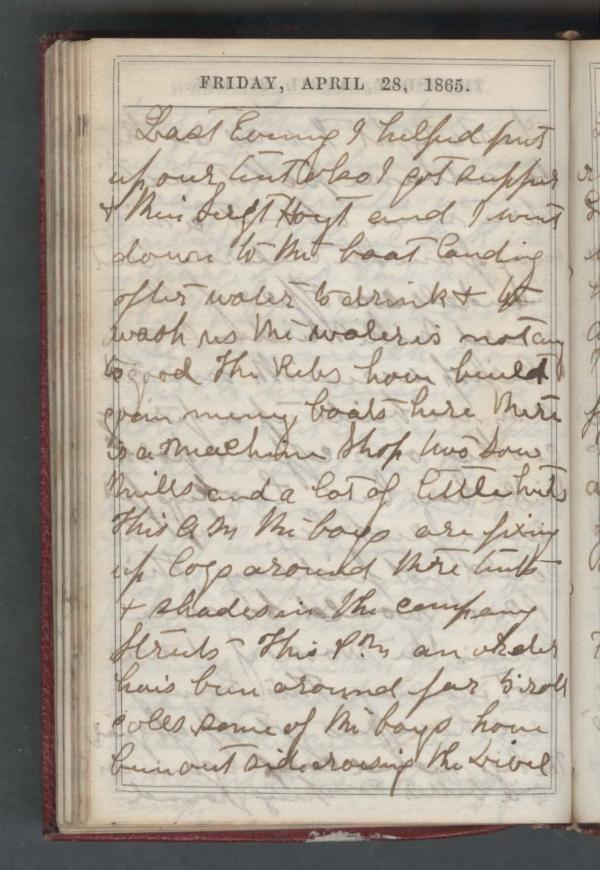 FRIDAY, APRIL 28, 1865.
Last Evening I helped put
up our tent also I got supper
& then Sergt Hoyt and I went
down to the boat landing
after water to drink & to
wash us the water is not any
to good The Rebs have built
good many boats here There
is a machine shop two Saw
Mills and a lot of little huts
This A M the boys are fixing
up logs around there tents
& shades in the company
Streets - This P.M an order
has been around for 5 roll
coles some of the boys have
been out side raising the Divel